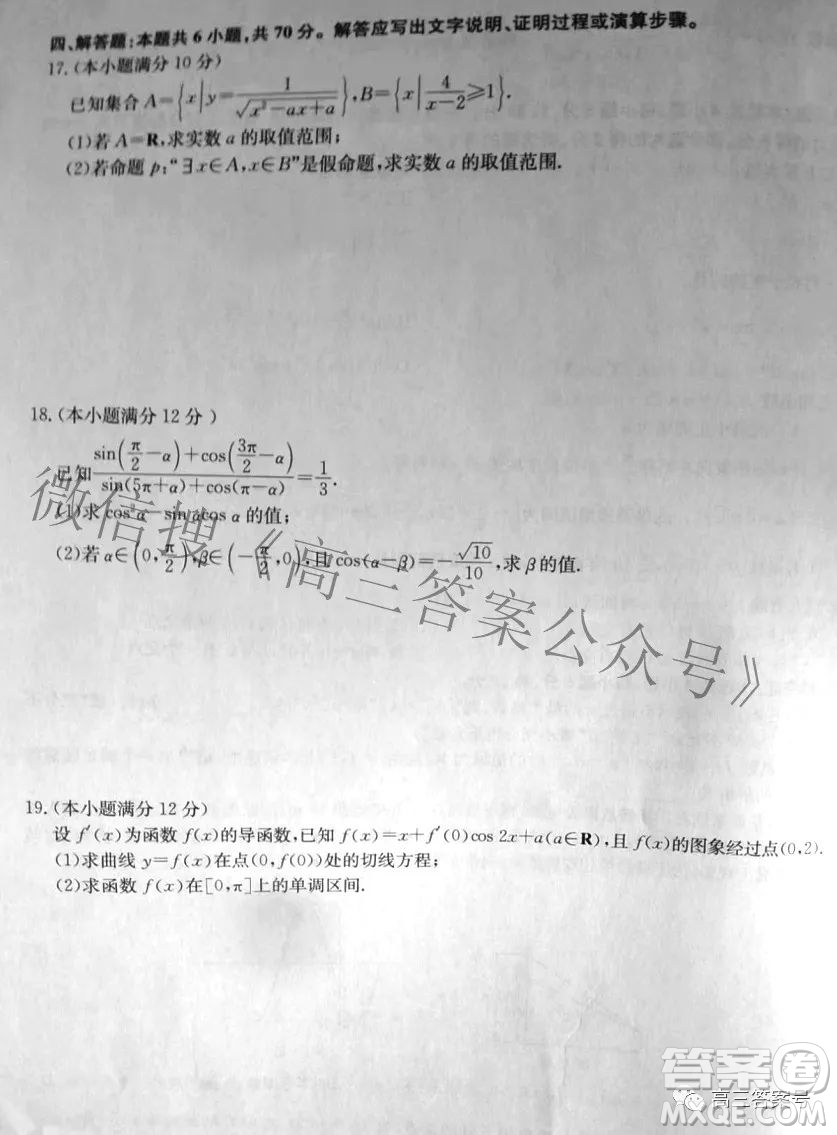 四、解答题:本题共6小题,共70分。解答应写出文字说明、证明过程或演算步骤。
17.(本小题满分10分)
已知集合A={x|y=1/√(x²-ax+a)},B={x|4/(x-2)≥1}.
(1)若A=R,求实数a的取值范围;
(2)若命题p:“∃x∈A,x∈B”是假命题,求实数a的取值范围.
18.(本小题满分12分)
已知(sin(π/2-α)+cos(3π/2-α))/(sin(5π+α)+cos(π-α))=1/3.
(1)求cos²α-sinαcosα的值;
(2)若α∈(0,π/2),β∈(-π/2,0),且cos(α-β)=-√10/10,求β的值.
19.(本小题满分12分)
设f′(x)为函数f(x)的导函数,已知f(x)=x+f′(0)cos2x+a(a∈R),且f(x)的图象经过点(0,2).
(1)求曲线y=f(x)在点(0,f(0))处的切线方程;
(2)求函数f(x)在[0,π]上的单调区间.
微信搜《高三答案公众号》
答案卷
高三答案号
MXQE.COM